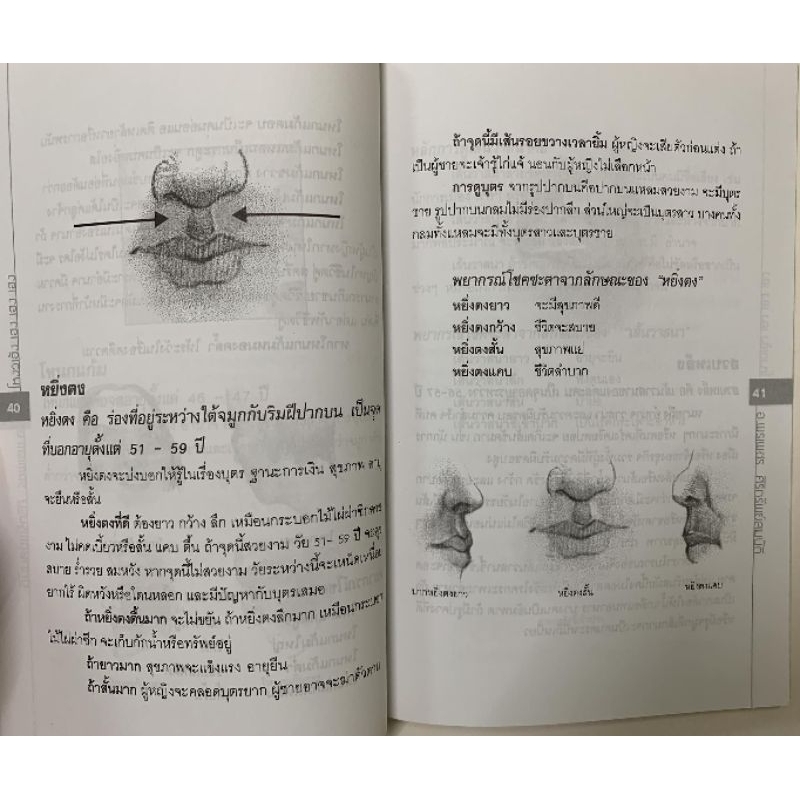 หยิ่งตง
40
หยิ่งตง คือ ร่องที่อยู่ระหว่างใต้จมูกกับริมฝีปากบน เป็นจุด
ที่บอกอายุตั้งแต่ 51 - 59 ปี
หยิ่งตงจะบ่งบอกให้รู้ในเรื่องบุตร ฐานะการเงิน สุขภาพ
จะยืนหรือสั้น
หยิ่งตงที่ดี ต้องยาว กว้าง ลึก เหมือนกระบอกไม้ไผ่ผ่าซีก
งาม ไม่คดเบี้ยวหรือสั้น แคบ ตื้น ถ้าจุดนี้สวยงาม วัย 51- 59 ปี จะสุข
สบาย ร่ำรวย สมหวัง หากจุดนี้ไม่สวยงาม วัยระหว่างนี้จะเหน็ดเหนื่อย
ยากไร้ ผิดหวังหรือโดนหลอก และมีปัญหากับบุตรเสมอ
ถ้าหยิ่งตงตื้นมาก จะไม่ขยัน ถ้าหยิ่งตงลึกมาก เหมือนกระบอก
ไม้ไผ่ผ่าซีก จะเก็บกักน้ำหรือทรัพย์อยู่
ถ้ายาวมาก สุขภาพจะแข็งแรง อายุยืน
ถ้าสั้นมาก ผู้หญิงจะคลอดบุตรยาก ผู้ชายอาจจะฆ่าตัวตาย
ถ้าจุดนี้มีเส้นรอยขวางเวลายิ้ม ผู้หญิงจะเสียตัวก่อนแต่ง ถ้า
เป็นผู้ชายจะเจ้าชู้ไก่แจ้ นอนกับผู้หญิงไม่เลือกหน้า
การดูบุตร จากรูปปากบนคือปากบนแหลมสวยงาม จะมีบุตร
ชาย รูปปากบนกลมไม่มีร่องปากลึก ส่วนใหญ่จะเป็นบุตรสาว บางคนทั้ง
กลมทั้งแหลมจะมีทั้งบุตรสาวและบุตรชาย
พยากรณ์โชคชะตาจากลักษณะของ "หยิ่งตง"
หยิ่งตงยาว จะมีสุขภาพดี
หยิ่งตงกว้าง ชีวิตจะสบาย
หยิ่งตงสั้น สุขภาพแย่
หยิ่งตงแคบ ชีวิตลำบาก
41
หยิ่งตงยาว
หยิ่งตงสั้น
หยิ่งตงแคบ